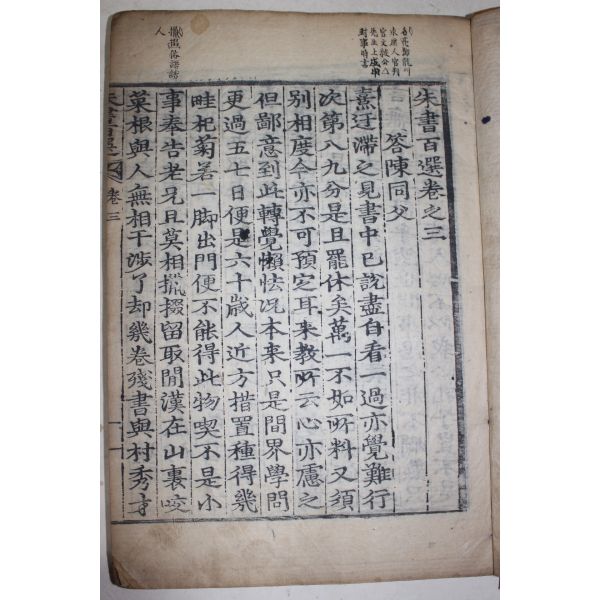 永康人官判
先生上戊申
封事時書
攛掇俗語誘
人
朱書百選卷之三
答陳同父
熹迂滯之見書中已說盡自看一過亦覺難行
次第八九分是且罷休矣萬一不如所料又須
別相度今亦不可預定耳來敎所云心亦慮之
但鄙意到此轉覺懶怯况本來只是間界學問
更過五七日便是六十歲人近方措置種得幾
畦杞菊若一脚出門便不能得此物喫不是小
事奉告老兄且莫相攛掇留取閒漢在山裏咬
菜根與人無相干涉了却幾卷殘書與村秀才
朱書百選 卷三